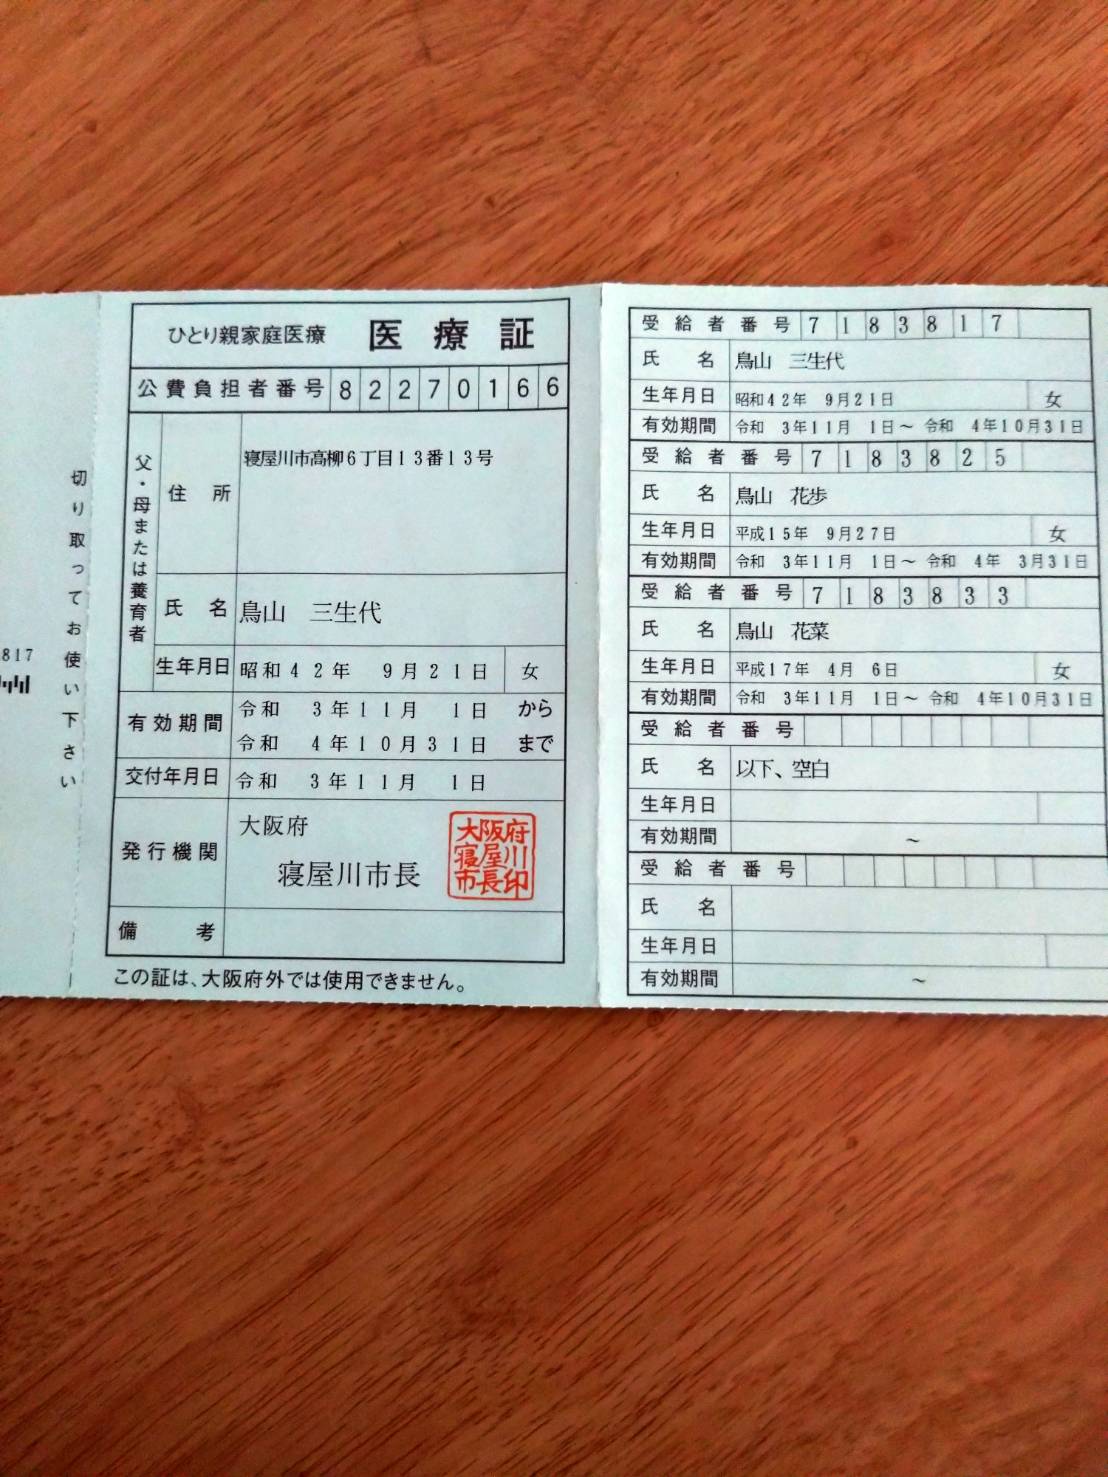 817
切り取ってお使い下さい
ひとり親家庭医療 医療証
公費負担者番号 82270166
父・母または養育者
住所 寝屋川市高柳6丁目13番13号
氏名 鳥山 三生代
生年月日 昭和42年 9月21日 女
有効期間 令和 3年11月 1日 から
令和 4年10月31日 まで
交付年月日 令和 3年11月 1日
発行機関 大阪府
寝屋川市長
大阪府
寝屋川
市長印
備考
この証は、大阪府外では使用できません。
受給者番号 7183817
氏名 鳥山 三生代
生年月日 昭和42年 9月21日 女
有効期間 令和 3年11月 1日～ 令和 4年10月31日
受給者番号 7183825
氏名 鳥山 花歩
生年月日 平成15年 9月27日 女
有効期間 令和 3年11月 1日～ 令和 4年 3月31日
受給者番号 7183833
氏名 鳥山 花菜
生年月日 平成17年 4月 6日 女
有効期間 令和 3年11月 1日～ 令和 4年10月31日
受給者番号
氏名 以下、空白
生年月日
有効期間 ～
受給者番号
氏名
生年月日
有効期間 ～